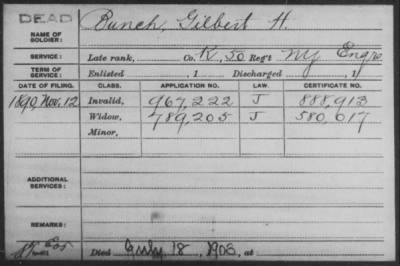 DEAD
NAME OF SOLDIER: Bunch, Gilbert H.
SERVICE: Late rank, Co. K, 50 Reg't NY Engrs
TERM OF SERVICE: Enlisted , 1 Discharged , 1
DATE OF FILING. CLASS. APPLICATION NO. LAW. CERTIFICATE NO.
1890, Nov. 12 Invalid, 967,222 J 888,913
Widow, 789,205 J 580,617
Minor,
ADDITIONAL SERVICES:
REMARKS:
Died July 18, 1903, at